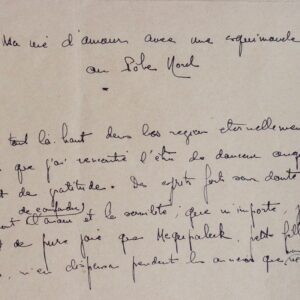 Ma vie d'amour avec une esquimaude
au Pôle Nord
tout là-haut dans les régions éternellement
que j'ai rencontré l'être de douceur
de gratitude. Des esprits forts sans doute
de confondre
et la sensible, que m'importe, j'
de pure joie que petite fille
rien dispersa pendant les années que